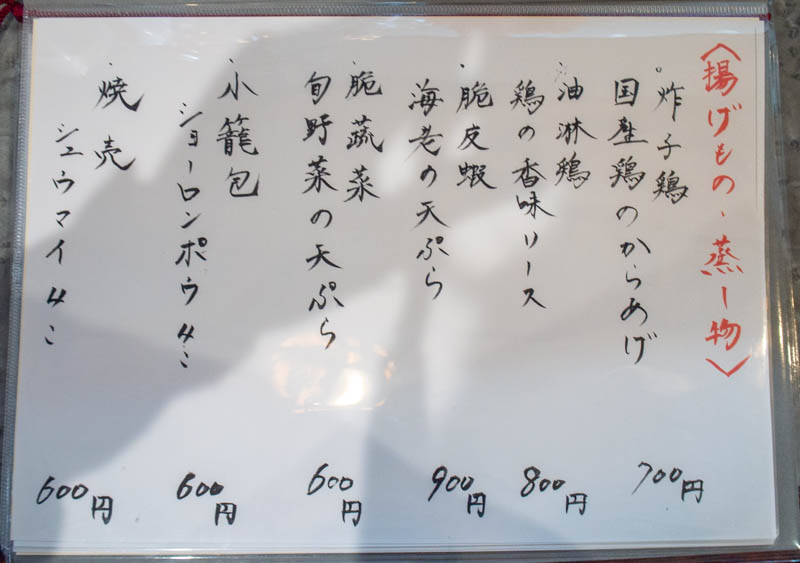 〈揚げもの、蒸し物〉
。炸子鶏
国産鶏のからあげ
700円
・油淋鶏
鶏の香味ソース
800円
・脆皮蝦
海老の天ぷら
900円
・脆蔬菜
旬野菜の天ぷら
600円
・小籠包
ショーロンポウ4こ
600円
・焼売
シュウマイ4こ
600円